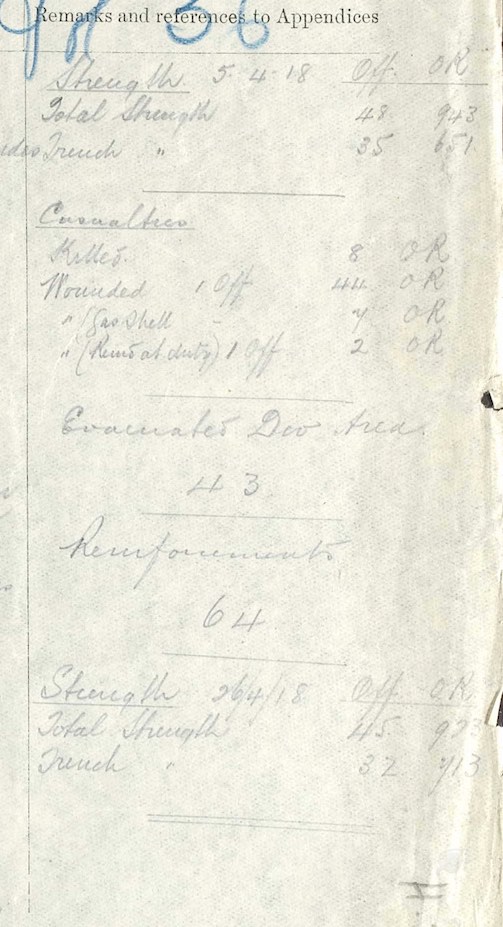 Remarks and references to Appendices
36
Strength 5-4-18 Off. OR
Total Strength 48 943
Trench " 35 651
Casualties
Killed. 8 OR
Wounded 1 Off 44 OR
" (Gas Shell - 7 OR
" (Remd at duty) 1 Off 2 OR
Evacuated Div Area.
43
Reinforcements
64
Strength 26/4/18 Off. OR
Total Strength 45 923
Trench " 32 713